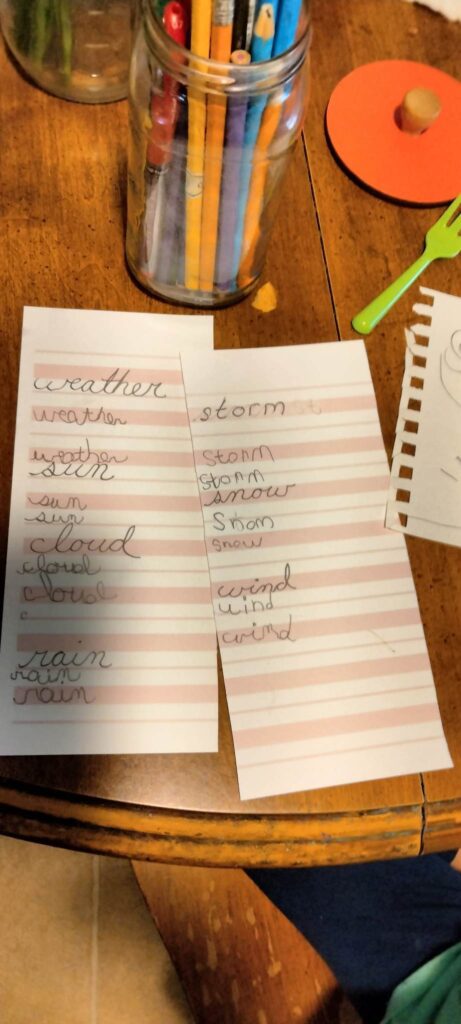 weather
weather
weather
sun
sun
sun
cloud
cloud
cloud
c
rain
rain
rain
storm st
Storm
Storm
snow
Snow
snow
wind
wind
wind